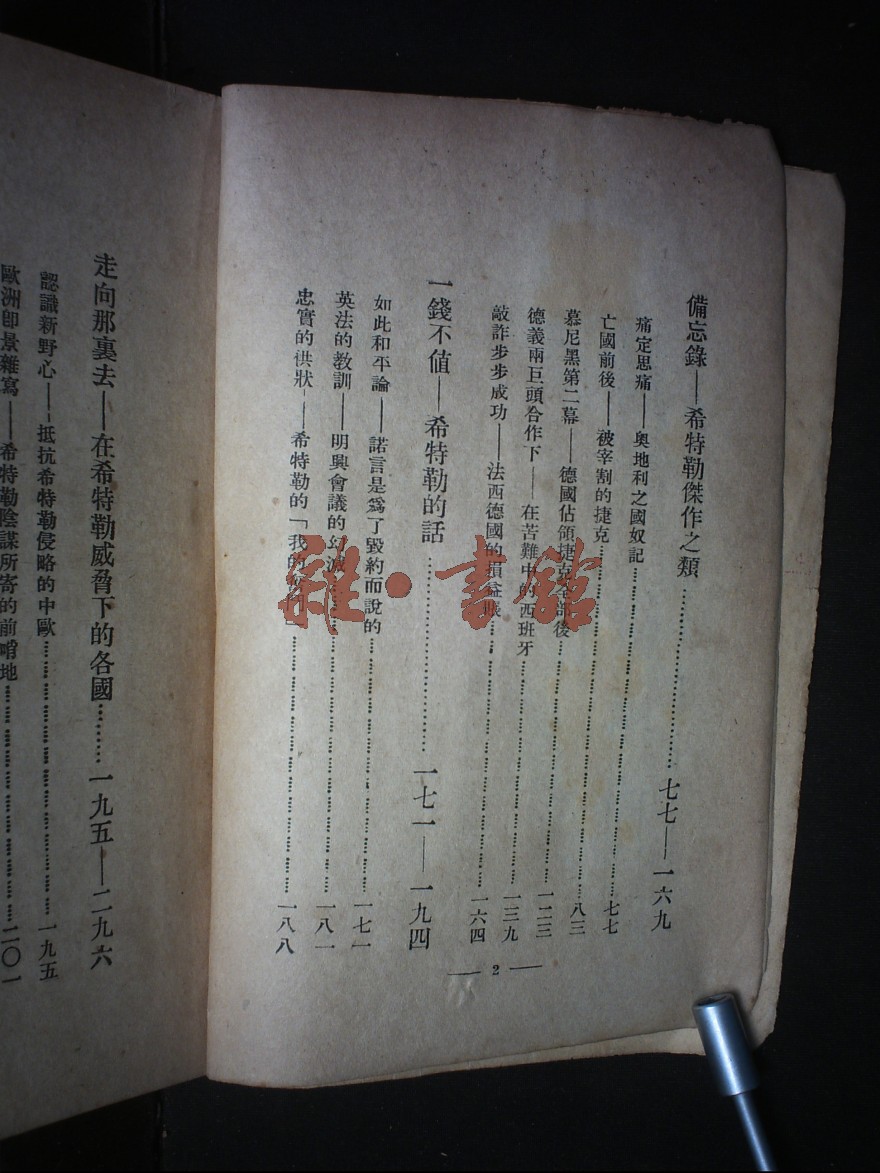 備忘錄——希特勒傑作之類…………七七——一六九
痛定思痛——奧地利之國奴記…………七七
亡國前後——被宰割的捷克…………八三
慕尼黑第二幕——德國佔領捷克全部後…………一二三
德義兩巨頭合作下——在苦難中的西班牙…………一三九
敲詐步步成功——法西德國的損益賬…………一六四
一錢不值——希特勒的話…………一七一——一九四
如此和平論——諾言是為了毀約而說的…………一七一
英法的教訓——明興會議的幻滅…………一八一
忠實的供狀——希特勒的「我的…………一八八
— 2 —
走向那裏去——在希特勒威脅下的各國………一九五——二九六
認識新野心——抵抗希特勒侵略的中歐…………一九五
歐洲即景雜寫——希特勒陰謀所寄的前哨地…………二〇一
雜·書館